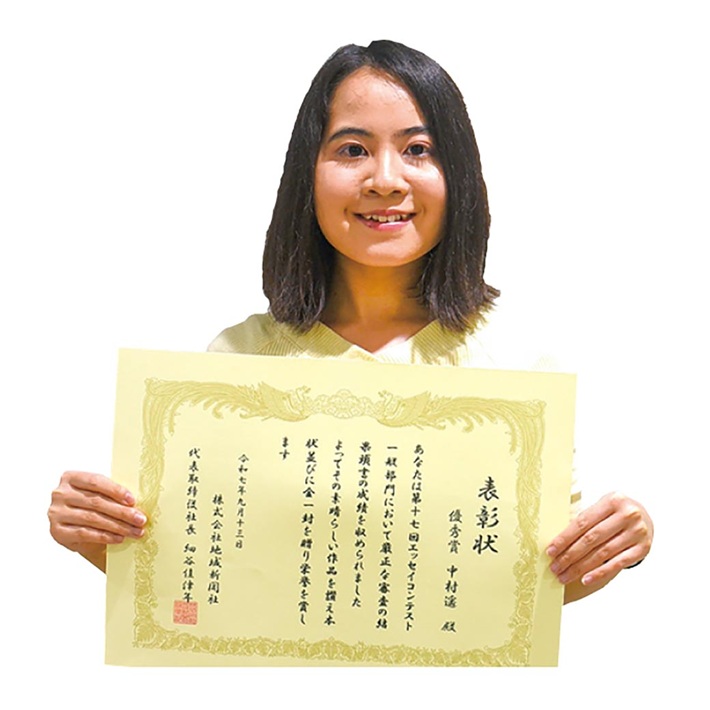 表彰状
優秀賞 中村遥 殿
あなたは第十七回エッセイコンテスト
一般部門において厳正な審査の結
果頭書の成績を収められました
よってその素晴らしい作品を讃え本
状並びに金一封を贈り栄誉を賞し
ます
令和七年九月十三日
株式会社地域新聞社
代表取締役社長 細谷佳津年